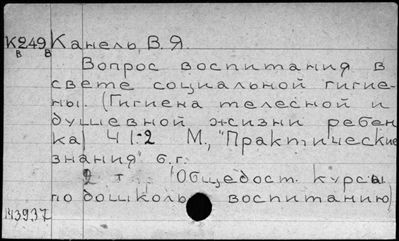 К249 Канель, В. Я.
в в
Вопрос воспитания в
свете социальной гигие-
ны. (Гигиена телесной и
душевной жизни ребен
ка) Ч 1-2 М., "Практические
знания" б.г.
2 т. (Общедост. курсы
по дошколь воспитанию)
143937